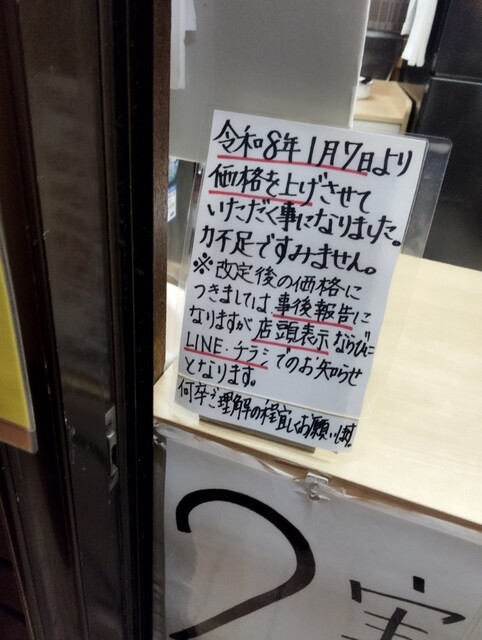 令和8年1月7日より
価格を上げさせて
いただく事になりました。
力不足ですみません。
※改定後の価格に
つきましては事後報告に
なりますが店頭表示ならびに
LINE・チラシでのお知らせ
となります。
何卒ご理解の程宜しくお願いします。